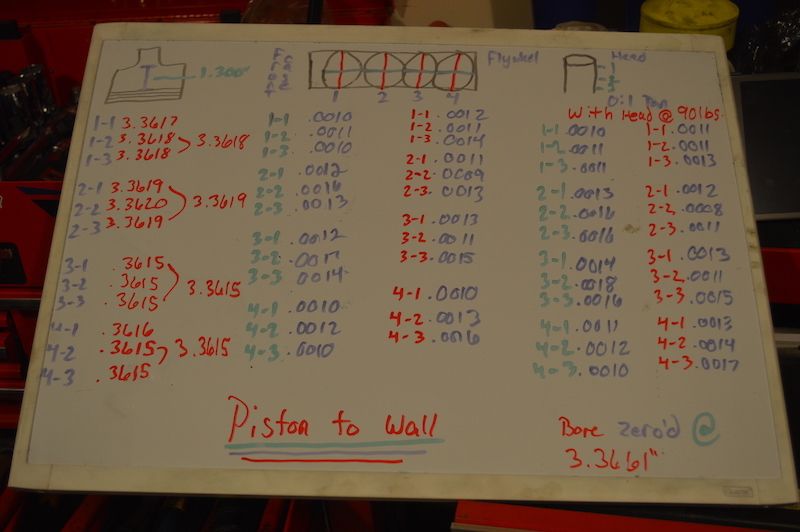 1.300"
Flywheel
Head
1
2
3
Oil Pan
1 2 3 4
With Head @ 90lbs.
1-1 3.3617
1-2 3.3618 3.3618
1-3 3.3618
2-1 3.3619
2-2 3.3620 3.3619
2-3 3.3619
3-1 .3615
3-2 .3615 3.3615
3-3 .3615
4-1 .3616
4-2 .3615 3.3615
4-3 .3615
1-1 .0010
1-2 .0011
1-3 .0010
2-1 .0012
2-2 .0016
2-3 .0013
3-1 .0012
3-2 .0017
3-3 .0014
4-1 .0010
4-2 .0012
4-3 .0010
1-1 .0012
1-2 .0011
1-3 .0014
2-1 .0011
2-2 .0009
2-3 .0013
3-1 .0013
3-2 .0011
3-3 .0015
4-1 .0010
4-2 .0013
4-3 .0016
1-1 .0010
1-2 .0011
1-3 .0011
2-1 .0013
2-2 .0016
2-3 .0016
3-1 .0014
3-2 .0018
3-3 .0016
4-1 .0011
4-2 .0012
4-3 .0010
1-1 .0011
1-2 .0011
1-3 .0013
2-1 .0012
2-2 .0008
2-3 .0011
3-1 .0013
3-2 .0011
3-3 .0015
4-1 .0013
4-2 .0014
4-3 .0017
Piston to Wall
Bore Zero'd @
3.3661"